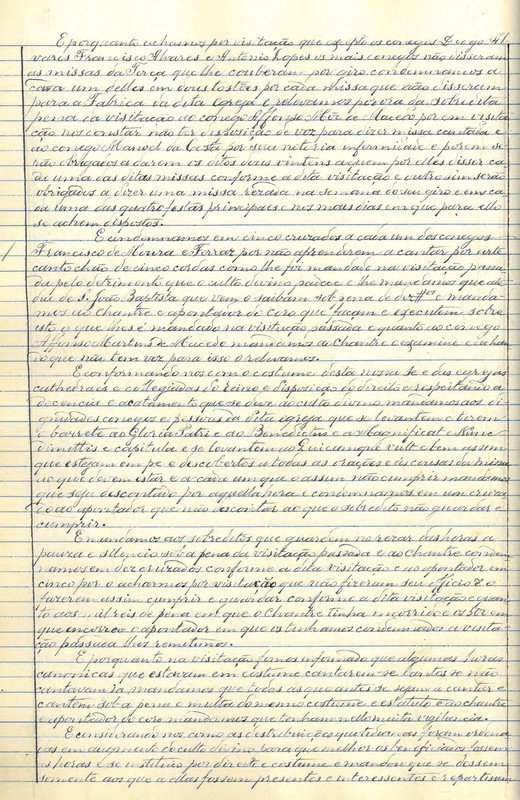 E porquanto achamos por visitação que exepto os conegos Diogo 41
vares Francisco Alvares e Antonio Lopes os mais conegos não disseram
as missas da Terça que lhe couberam por giro condemnamos a
cada um delles em dous tostões por cada missa que não disseram
para a Fabrica da dita egreja e relevamos por ora da sobredita
pena da visitação ao conego Affonso Miz de Macedo por em visita
ção nos constar não ter disposição de voz para dizer missa cantada e
ao conego Manoel da Costa por sua notoria infermidade e porem se
rão obrigados a darem os ditos dous vintens a quem por elles disser ca
da uma das ditas missas conforme a dita visitação e outro sim serão
obrigados a dizer uma missa rezada na semana do seu giro e em ca
da uma das quatro festas principaes e nos mais dias em que para ello
se achem dispostos.
E condemnamos em cinco cruzados a cada um dos conegos
Francisco de Moura e Ferraz por não aprenderem a cantar por arte
canto chão de cinco cordas como lhe foi mandado na visitação passa
da pelo detrimento que o culto divino padece e lhe mandamos que até
dia de S. João Baptista que vem o saibam sob pena de dez e manda
mos ao chantre e apontador do coro que façam e executem sobre
isto o que lhes é mandado na visitação passada e quanto ao conego
Affonso Martins de Macedo mandamos ao Chantre o examine e achan
do que não tem voz para isso o relevamos.
E conformando nos com o costume desta nossa Sé e das egrejas
cathedraes e collegiadas do reino e disposição do direito e respeitando a
decencia e acatamento que se deve ao culto divino mandamos aos di
gnidades conegos e pessoas da dita egreja que se levantem e tirem
o barrete ao Gloria Patri e ao Benedictus e a Magnificat Nunc
dimittis e capitula e se levantem ao Quicunque vult e bem assim
que estejam em pé e descobertos a todas as orações e ás cousas da missa
ao que devem estar e a cada um que o assim não cumprir mandamos
que seja descontado por aquella hora e condemnamos em um cruza
do ao apontador que não descontar ao que o sobredito não guardar e
cumprir.
E mandamos aos sobreditos que guardem no rezar das horas a
pauza e silencio sob a pena da visitação passada e ao Chantre condem
namos em dez cruzados conforme a dita visitação e ao apontador em
cinco por o acharmos por visitação que não fizeram seu officio e o
fazerem assim cumprir e guardar conforme a dita visitação e quan
to aos mil reis de pena em que o Chantre tinha incorrido e os 500 em
que encorreo o apontador em que os tinhamos condemnados a visita
ção passada lhos remetimos.
E porquanto na visitação fomos informado que algumas horas
canonicas que estavam em costume cantarem-se cantos se não
cantavam já, mandamos que todas as que antes se sejam a cantar e
cantem sob a pena e multa do mesmo costume e estatuto e ao chantre
e apontador do coro mandamos que tenham nello muita vigilancia.
E considerando nos como as destribuições quotidianas foram ordena
das em augmento do culto divino para que melhor os beneficiados fossem
ás horas e se instituio por direito e costume e mandou que se dessem
somente aos que a ellas fossem presentes e interessentes e repartissem